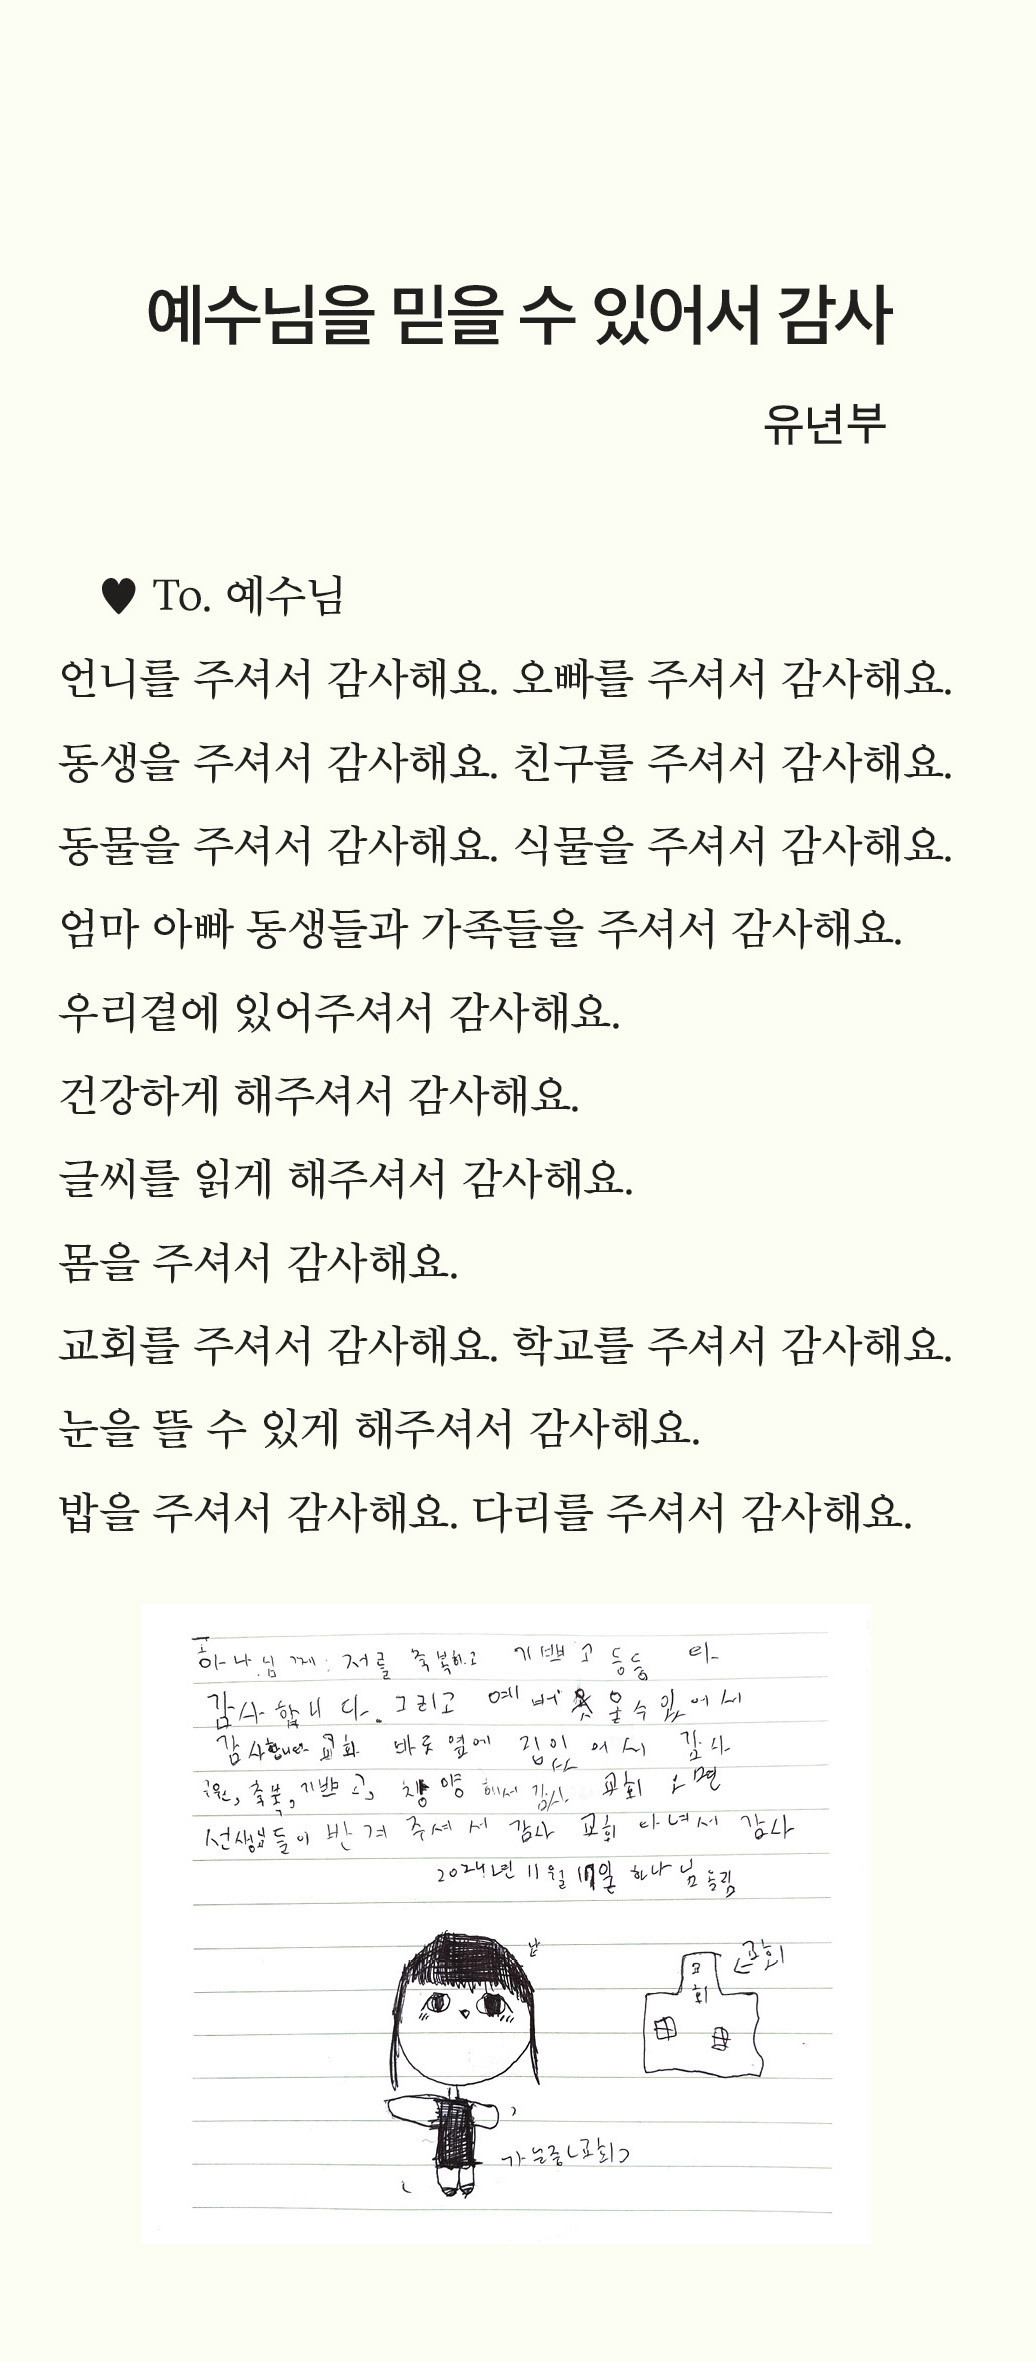 예수님을 믿을 수 있어서 감사
유년부
♥ To. 예수님
언니를 주셔서 감사해요. 오빠를 주셔서 감사해요.
동생을 주셔서 감사해요. 친구를 주셔서 감사해요.
동물을 주셔서 감사해요. 식물을 주셔서 감사해요.
엄마 아빠 동생들과 가족들을 주셔서 감사해요.
우리곁에 있어주셔서 감사해요.
건강하게 해주셔서 감사해요.
글씨를 읽게 해주셔서 감사해요.
몸을 주셔서 감사해요.
교회를 주셔서 감사해요. 학교를 주셔서 감사해요.
눈을 뜰 수 있게 해주셔서 감사해요.
밥을 주셔서 감사해요. 다리를 주셔서 감사해요.
하나님께: 저를 축복하고 기쁘고 등등 다
감사합니다. 그리고 예배 올수있어서
감사합니다 교회 바로옆에 집있어서 감사
구원, 축복, 기쁘고, 찬양해서 감사 교회 오면
선생님들이 반겨주셔서 감사 교회 다녀서 감사
2024년 11월 17일 하나님 드림
교회
교회
가는중(교회)